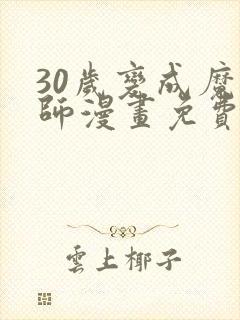 30歲變成魔
師漫畫免費
雲上椰子